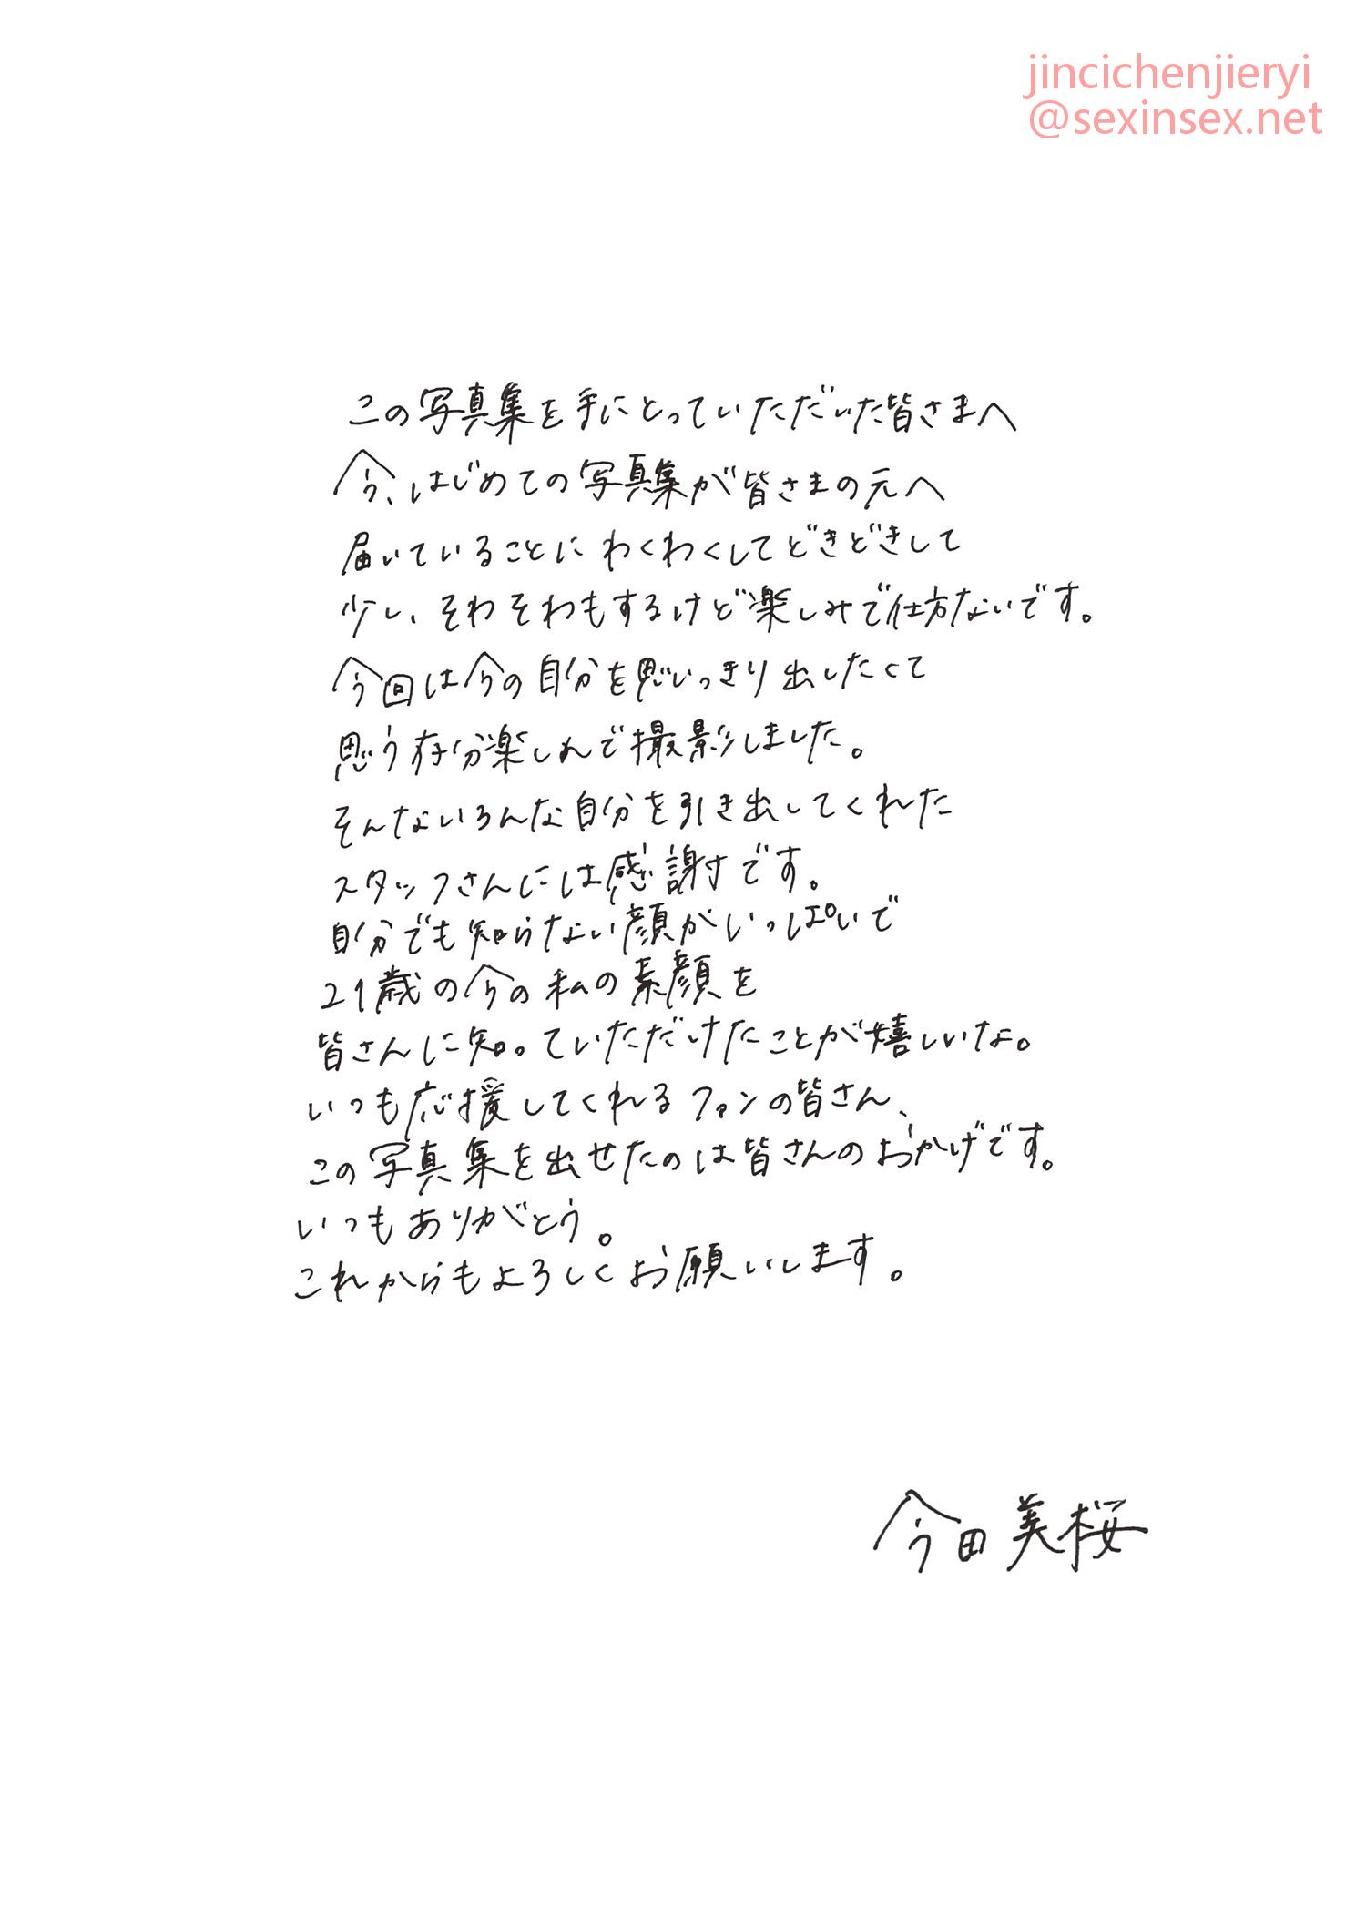 jincichenjieryi
@sexinsex.net
この写真集を手にとっていただいた皆さまへ
今、はじめての写真集が皆さまの元へ
届いていることにわくわくしてどきどきして
少し、そわそわもするけど楽しみで仕方ないです。
今回は今の自分を思いっきり出したくて
思う存分楽しんで撮影しました。
そんないろんな自分を引き出してくれた
スタッフさんには感謝です。
自分でも知らない顔がいっぱいで
21歳の今の私の素顔を
皆さんに知っていただけたことが嬉しいな。
いつも応援してくれるファンの皆さん、
この写真集を出せたのは皆さんのおかげです。
いつもありがとう。
これからもよろしくお願いします。
今田美桜